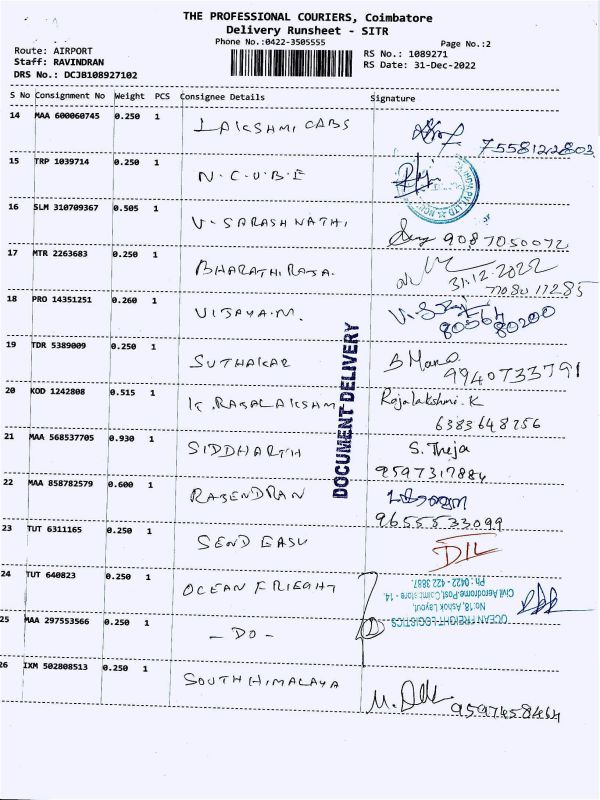 THE PROFESSIONAL COURIERS, Coimbatore
Delivery Runsheet - SITR
Phone No.:0422-3505555
Page No.:2
Route: AIRPORT
RS No.: 1089271
Staff: RAVINDRAN
RS Date: 31-Dec-2022
DRS No.: DCJB108927102
S No Consignment No Weight PCS Consignee Details Signature
14 MAA 600060745 0.250 1 LAKSHMI CABS 7558122803
15 TRP 1039714 0.250 1 N.C.U.B.E
16 SLM 310709367 0.505 1 V. SARASHNATHI 9087050072
17 MTR 2263683 0.250 1 BHARATHIRAJA. 31.12.2022
77080 17285
18 PRO 14351251 0.260 1 VIJAYA.M. 80564 80200
19 TDR 5389009 0.250 1 SUTHAKAR B Mano 9940733791
20 KOD 1242808 0.515 1 K.RAJALAKSHMI Rajalakshmi.K
6383648256
21 MAA 568537705 0.930 1 SIDDHARTH S. Theja
9597317884
22 MAA 858782579 0.600 1 RAJENDRAN
96555 33099
23 TUT 6311165 0.250 1 SEND EASU DIL
24 TUT 640823 0.250 1 OCEAN FRIEGHT
OCEAN FREIGHT LOGISTICS
No:18, Ashok Layout,
Civil Aerodrome Post, Coimbatore - 14.
Ph : 0422 - 422 3887
25 MAA 297553566 0.250 1 - DO - 2
26 IXM 502808513 0.250 1 SOUTH HIMALAYA 9597458464
DOCUMENT DELIVERY